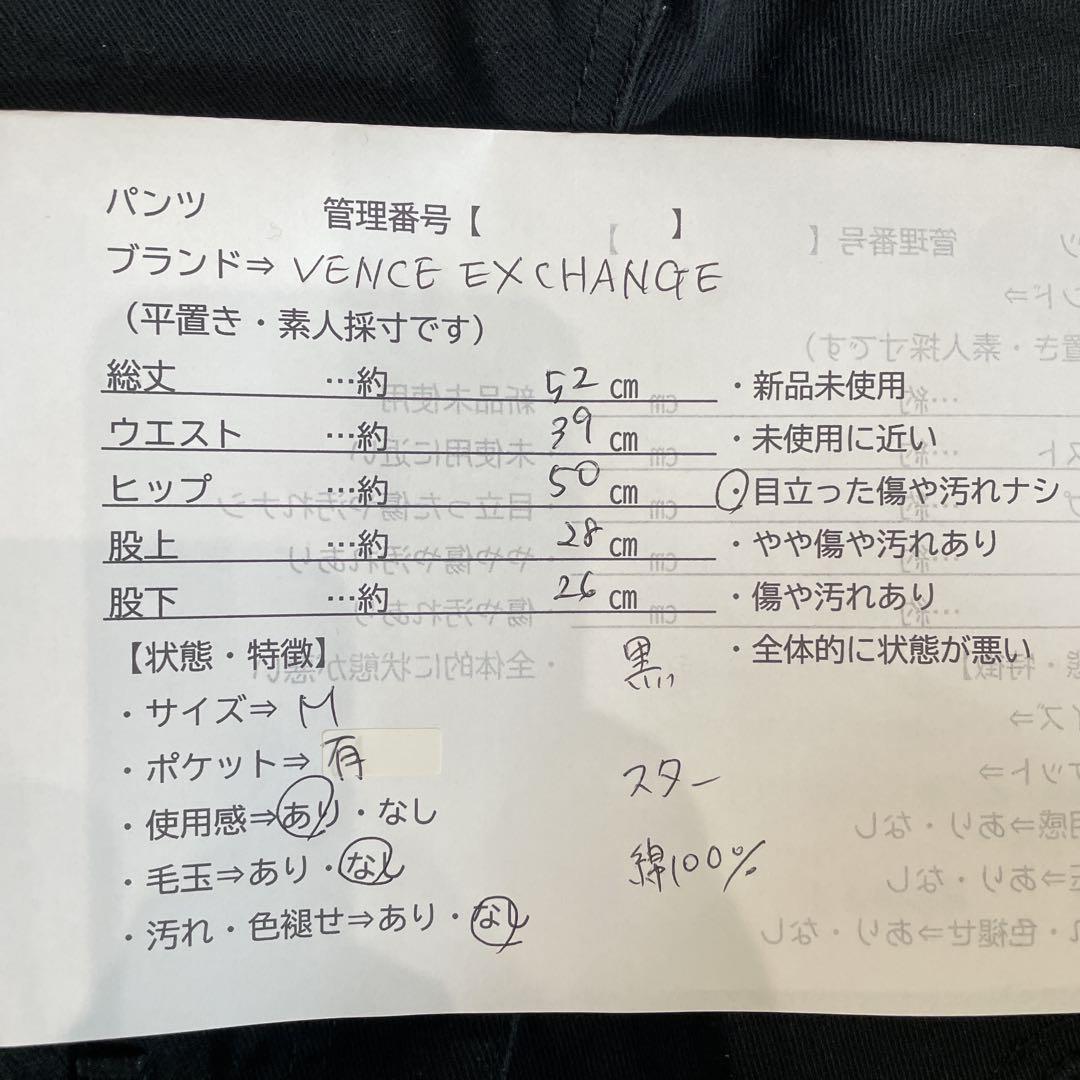 パンツ 管理番号【 】
ブランド⇒ VENCE EXCHANGE
（平置き・素人採寸です）
総丈 …約 52 cm ・新品未使用
ウエスト …約 39 cm ・未使用に近い
ヒップ …約 50 cm ・目立った傷や汚れナシ
股上 …約 28 cm ・やや傷や汚れあり
股下 …約 26 cm ・傷や汚れあり
【状態・特徴】 黒 ・全体的に状態が悪い
・サイズ⇒ M
・ポケット⇒ 有 スター
・使用感⇒あり・なし
・毛玉⇒あり・なし 綿100%
・汚れ・色褪せ⇒あり・なし